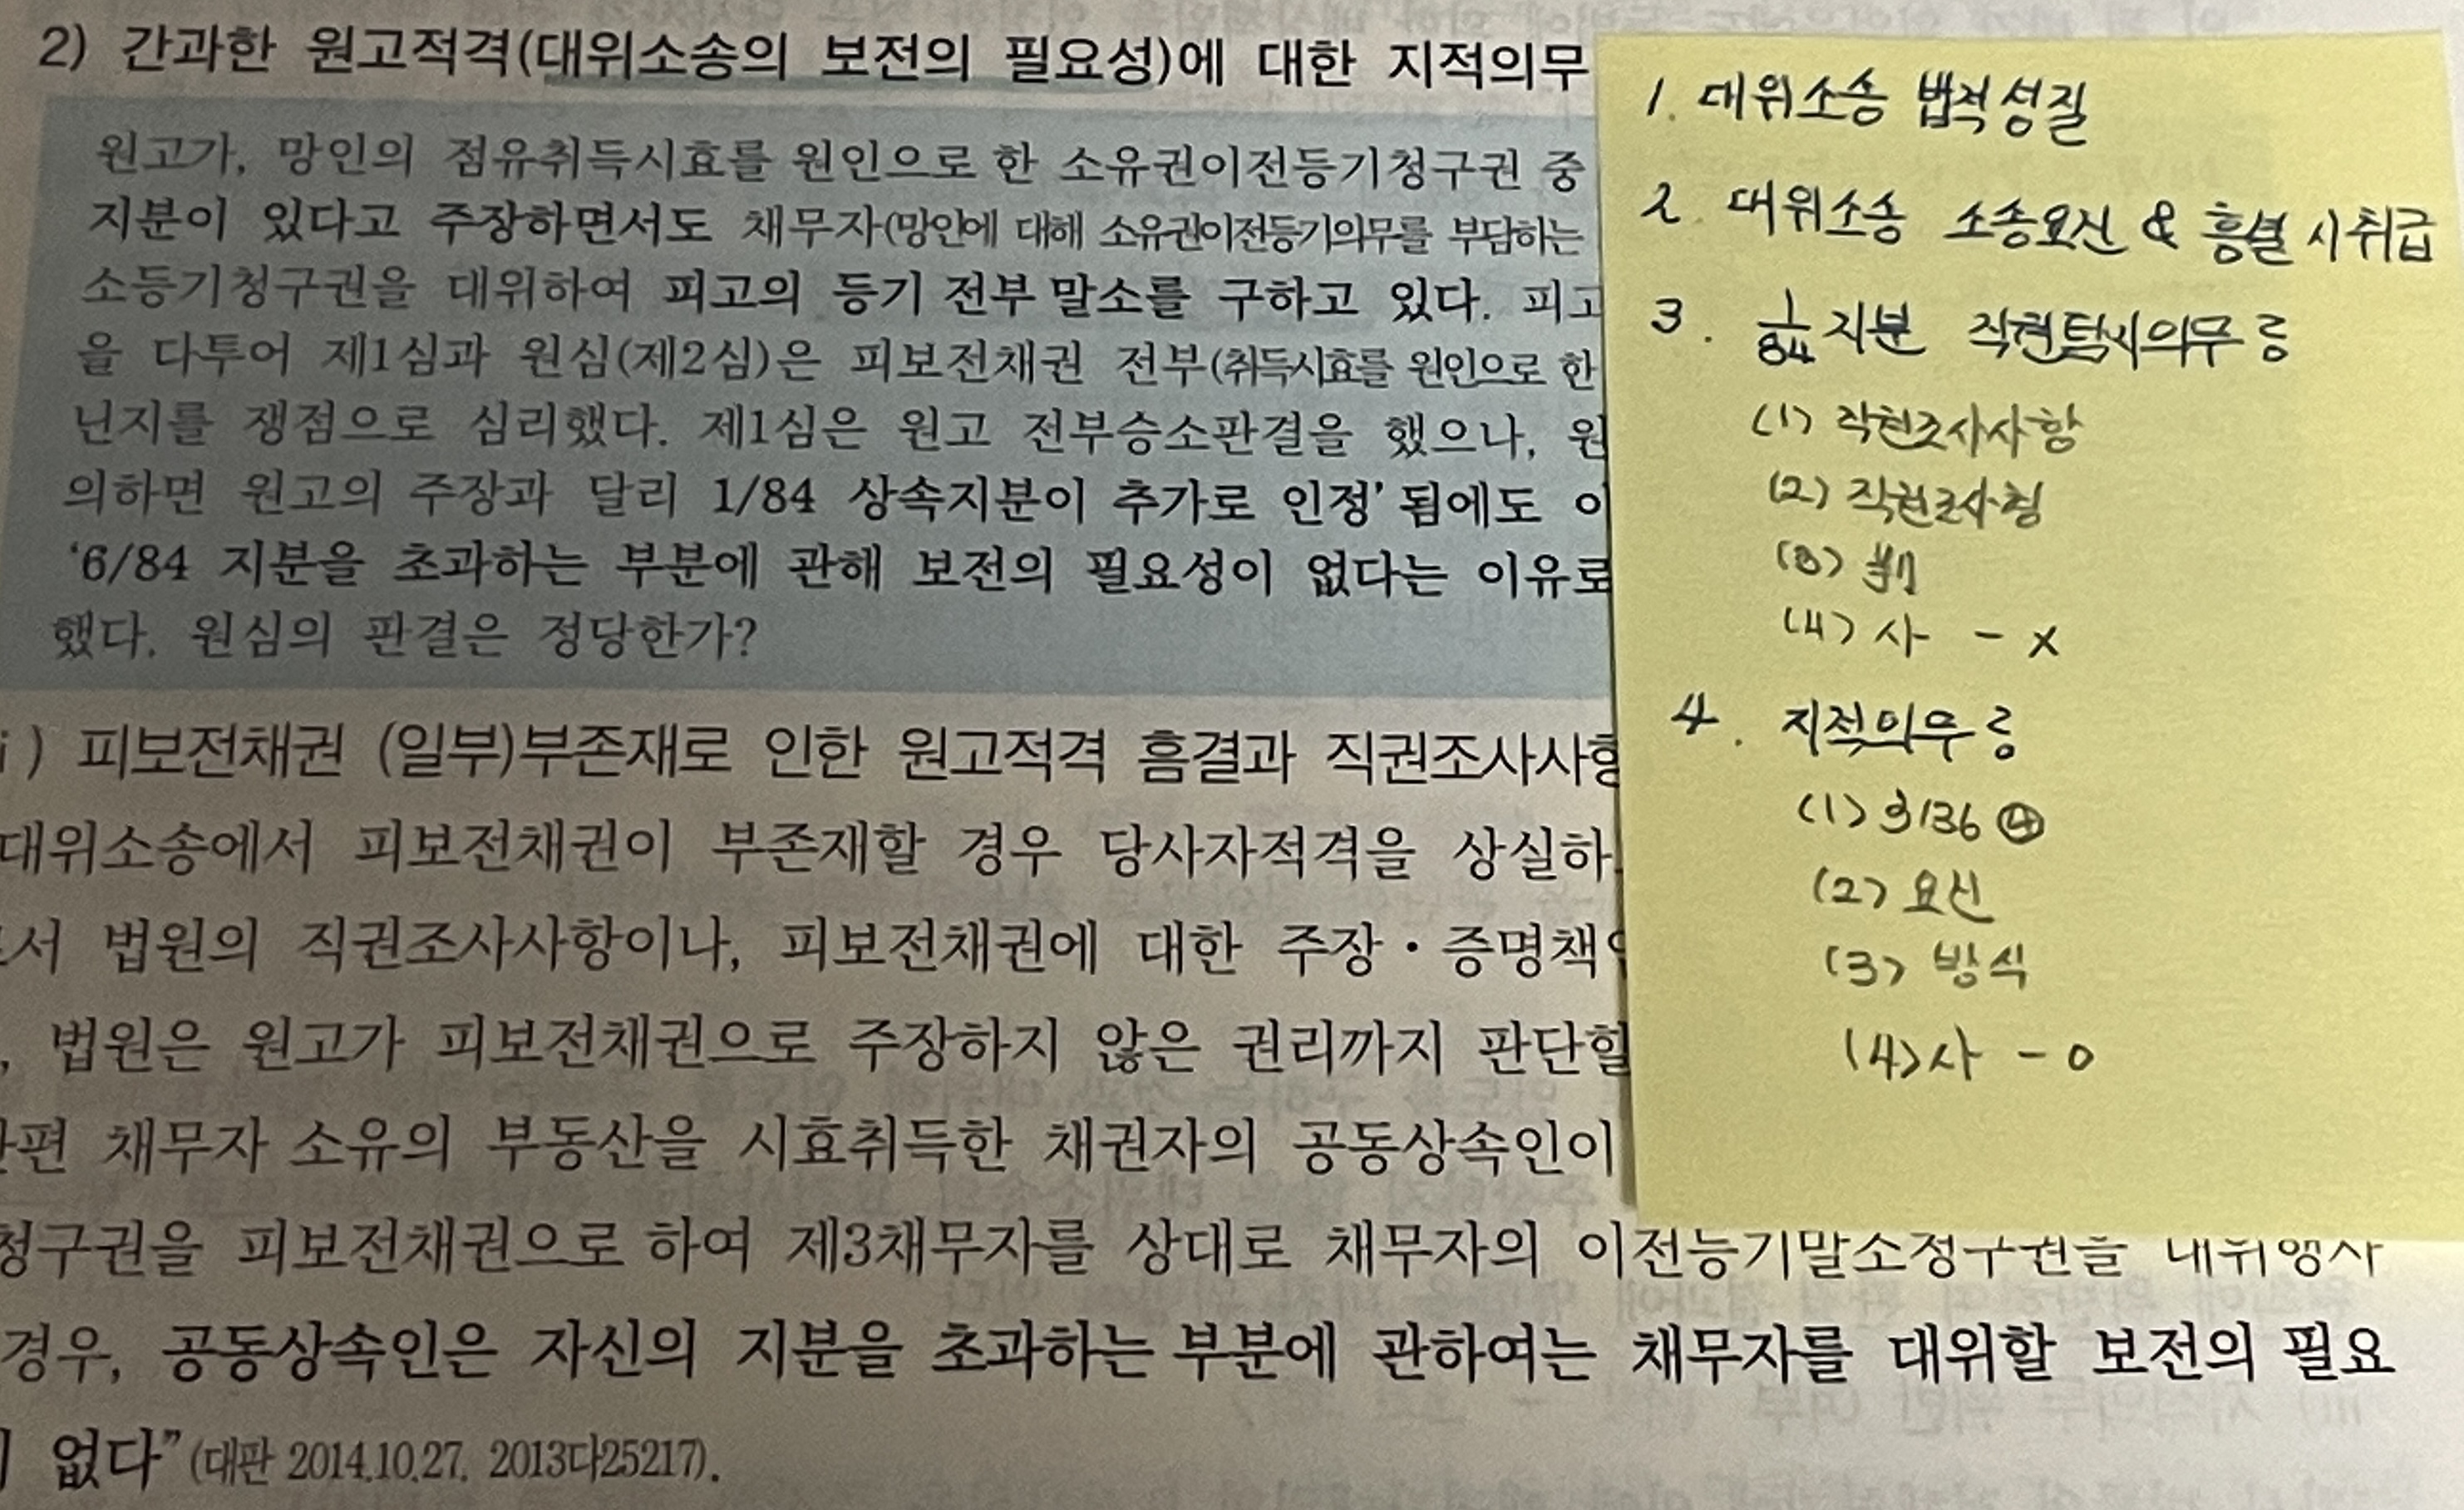 2) 간과한 원고적격(대위소송의 보전의 필요성)에 대한 지적의무
원고가, 망인의 점유취득시효를 원인으로 한 소유권이전등기청구권 중
지분이 있다고 주장하면서도 채무자(망인에 대해 소유권이전등기의무를 부담하는
소등기청구권을 대위하여 피고의 등기 전부 말소를 구하고 있다. 피고
을 다투어 제1심과 원심(제2심)은 피보전채권 전부(취득시효를 원인으로 한
닌지를 쟁점으로 심리했다. 제1심은 원고 전부승소판결을 했으나, 원
의하면 원고의 주장과 달리 1/84 상속지분이 추가로 인정’됨에도 이
‘6/84 지분을 초과하는 부분에 관해 보전의 필요성이 없다는 이유로
했다. 원심의 판결은 정당한가?
i) 피보전채권 (일부)부존재로 인한 원고적격 흠결과 직권조사사항
대위소송에서 피보전채권이 부존재할 경우 당사자적격을 상실하
서 법원의 직권조사사항이나, 피보전채권에 대한 주장·증명책
, 법원은 원고가 피보전채권으로 주장하지 않은 권리까지 판단할
편 채무자 소유의 부동산을 시효취득한 채권자의 공동상속인이
청구권을 피보전채권으로 하여 제3채무자를 상대로 채무자의 이전등기말소청구권을 대위행사
경우, 공동상속인은 자신의 지분을 초과하는 부분에 관하여는 채무자를 대위할 보전의 필요
없다”(대판 2014.10.27. 2013다25217).
1. 대위소송 법적성질
2. 대위소송 소송요건 & 흠결시 취급
3. 1/84 지분 직권탐지의무 ㅇ
(1) 직권조사사항
(2) 직권조사형
(3) 判
(4) 사 - X
4. 지적의무
(1) §136 ④
(2) 요건
(3) 방식
(4) 사 - O